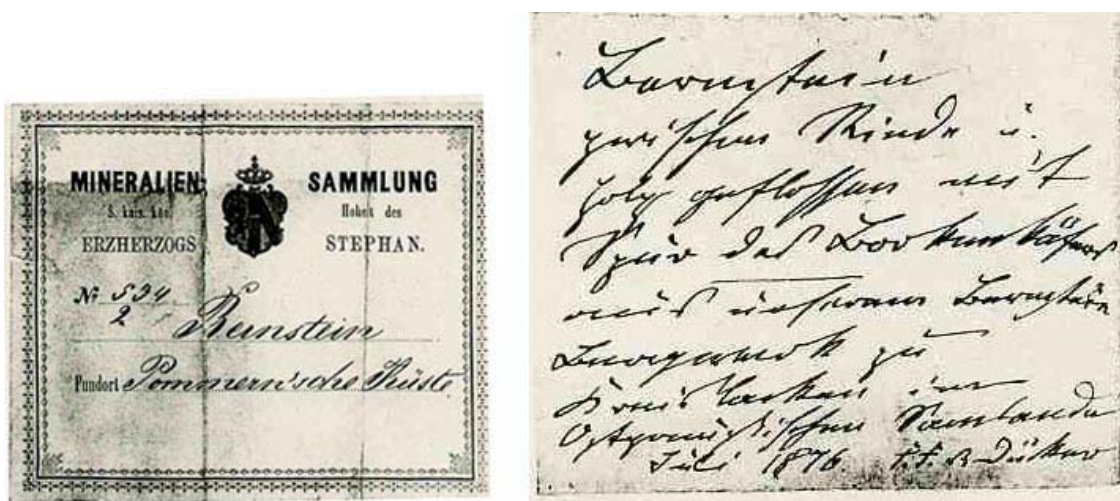 MINERALIEN- SAMMLUNG
S. kais. kön. Hoheit des
ERZHERZOGS STEPHAN.
No 534
2
Bernstein
Fundort Pommern'sche Küste.
Bernstein
zwischen Rinde u.
Holz geflossen mit
Spur des Borkenkäfers
aus unserem Bernstein
Bergwerk zu
im
Ostpreußischen Samlande
Juli 1876 F. F. v Dücker